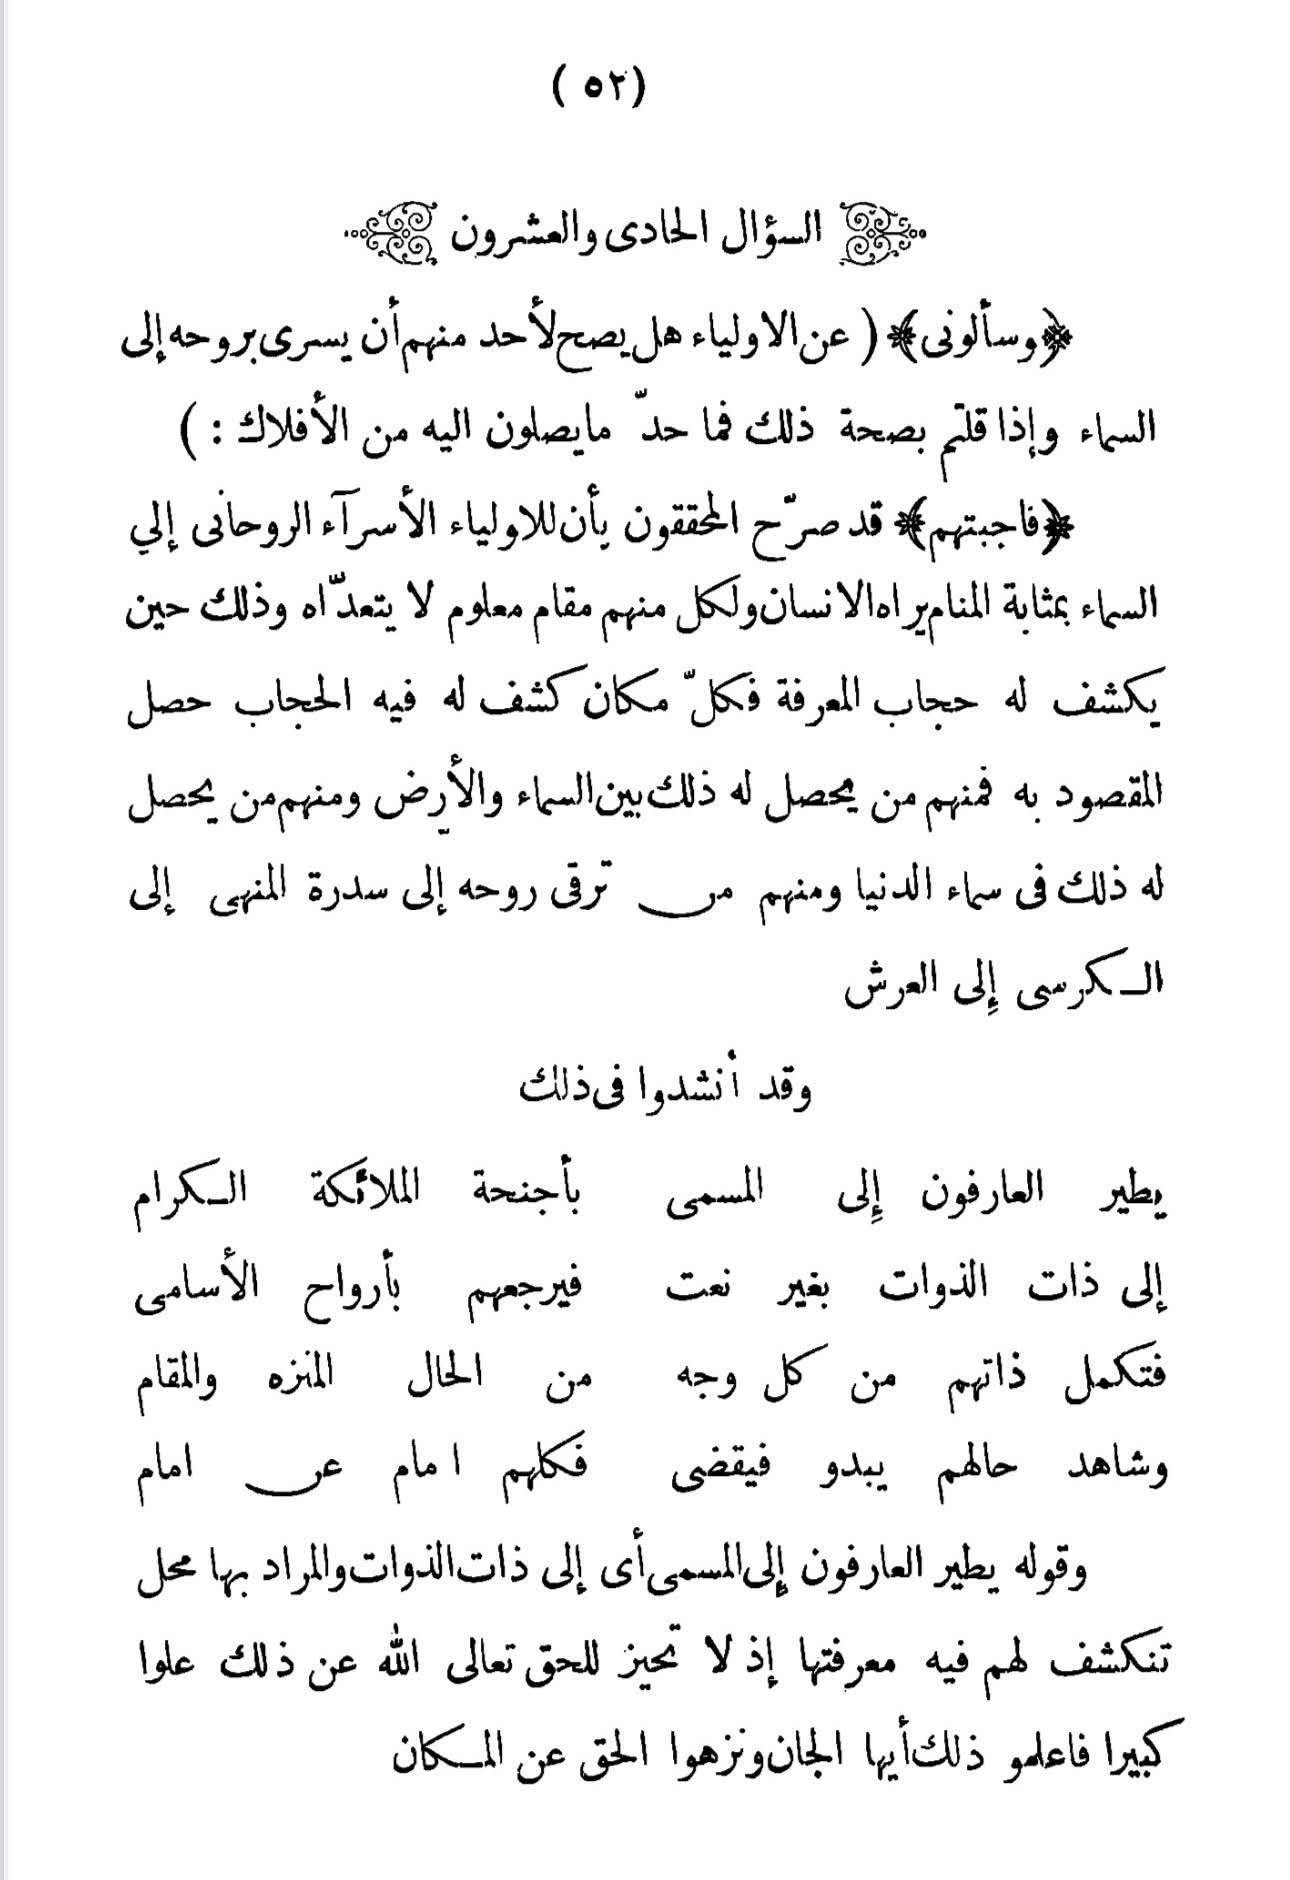 (٥٢)
السؤال الحادى والعشرون
﴿وسألونى﴾ ( عن الاولياء هل يصح لأحد منهم أن يسرى بروحه إلى
السماء وإذا قلتم بصحة ذلك فما حدّ مايصلون اليه من الأفلاك : )
﴿فاجبتهم﴾ قد صرّح المحققون بأن للاولياء الأسرآء الروحانى إلي
السماء بمثابة المنام يراه الانسان ولكل منهم مقام معلوم لا يتعدّاه وذلك حين
يكشف له حجاب المعرفة فكلّ مكان كشف له فيه الحجاب حصل
المقصود به فمنهم من يحصل له ذلك بين السماء والأرض ومنهم من يحصل
له ذلك فى سماء الدنيا ومنهم من ترقى روحه إلى سدرة المنهى إلى
الكرسى إلى العرش
وقد أنشدوا فى ذلك
يطير العارفون إلى المسمى بأجنحة الملائكة الكرام
إلى ذات الذوات بغير نعت فيرجعهم بأرواح الأسامى
فتكمل ذاتهم من كل وجه من الحال المنزه والمقام
وشاهد حالهم يبدو فيقضى فكلهم امام عن امام
وقوله يطير العارفون إلى المسمى أى إلى ذات الذوات والمراد بها محل
تنكشف لهم فيه معرفتها إذ لا تحيز للحق تعالى الله عن ذلك علوا
كبيرا فاعلمو ذلك أيها الجان ونزهوا الحق عن المكان